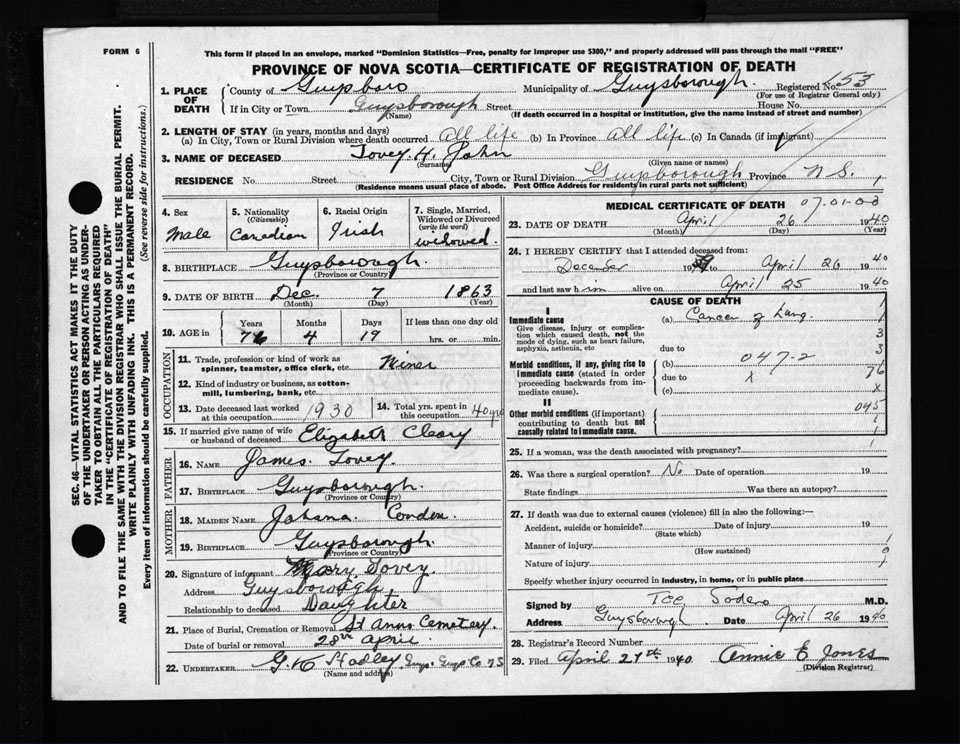 FORM 6
This form if placed in an envelope, marked "Dominion Statistics—Free, penalty for improper use $300," and properly addressed will pass through the mail "FREE"
PROVINCE OF NOVA SCOTIA—CERTIFICATE OF REGISTRATION OF DEATH
SEC. 46—VITAL STATISTICS ACT MAKES IT THE DUTY
OF THE UNDERTAKER OR PERSON ACTING AS UNDER-
TAKER TO OBTAIN ALL THE PARTICULARS REQUIRED
IN THE "CERTIFICATE OF REGISTRATION OF DEATH"
AND TO FILE THE SAME WITH THE DIVISION REGISTRAR WHO SHALL ISSUE THE BURIAL PERMIT.
WRITE PLAINLY WITH UNFADING INK. THIS IS A PERMANENT RECORD.
Every item of information should be carefully supplied. (See reverse side for instructions.)
1. PLACE OF DEATH County of Guysboro Municipality of Guysborough Registered No. 653
(For use of Registrar General only)
If in City or Town Guysborough Street House No.
(Name) (If death occurred in a hospital or institution, give the name instead of street and number)
2. LENGTH OF STAY (in years, months and days)
(a) In City, Town or Rural Division where death occurred all life (b) In Province all life (c) In Canada (if immigrant)
3. NAME OF DECEASED Tovey H. John
(Surname) (Given name or names)
RESIDENCE No. Street City, Town or Rural Division Guysborough Province N.S.
(Residence means usual place of abode. Post Office Address for residents in rural parts not sufficient)
4. Sex Male
5. Nationality (Citizenship) Canadian
6. Racial Origin Irish
7. Single, Married, Widowed or Divorced (write the word) widowed
8. BIRTHPLACE Guysborough
(Province or Country)
9. DATE OF BIRTH Dec. 7 1863
(Month) (Day) (Year)
10. AGE in Years Months Days If less than one day old
76 4 19 hrs. or min.
OCCUPATION
11. Trade, profession or kind of work as spinner, teamster, office clerk, etc. Miner
12. Kind of industry or business, as cotton-mill, lumbering, bank, etc.
13. Date deceased last worked at this occupation 1930
14. Total yrs. spent in this occupation 40 yrs
15. If married give name of wife or husband of deceased Elizabeth Cleary
FATHER
16. Name James Tovey
17. Birthplace Guysborough
(Province or Country)
MOTHER
18. Maiden Name Johana Conden
19. Birthplace Guysborough
(Province or Country)
20. Signature of informant Mary Tovey
Address Guysborough
Relationship to deceased Daughter
21. Place of Burial, Cremation or Removal St Anns Cemetery
Date of burial or removal 28th April
22. Undertaker G. Hadley Guys. Guys Co NS
(Name and address)
MEDICAL CERTIFICATE OF DEATH 07-01-03
23. DATE OF DEATH April 26 1940
(Month) (Day) (Year)
24. I HEREBY CERTIFY that I attended deceased from:
December 1939 to April 26 1940
and last saw him alive on April 25 1940
CAUSE OF DEATH
I
Immediate cause (a) Cancer of Lung
Give disease, injury or complication which caused death, not the mode of dying, such as heart failure, asphyxia, asthenia, etc.
due to
Morbid conditions, if any, giving rise to immediate cause (stated in order proceeding backwards from immediate cause). (b) 047-2
due to X
(c)
II
Other morbid conditions (if important) contributing to death but not causally related to immediate cause.
1
3
3
76
X
045
1
25. If a woman, was the death associated with pregnancy?
26. Was there a surgical operation? No Date of operation 19
State findings Was there an autopsy?
27. If death was due to external causes (violence) fill in also the following:—
Accident, suicide or homicide? Date of injury 19
(State which)
Manner of injury
(How sustained)
Nature of injury
Specify whether injury occurred in industry, in home, or in public place
Signed by M.D.
Address Guysborough Date April 26 1940
28. Registrar's Record Number
29. Filed April 27th 1940 Annie E Jones
(Division Registrar)